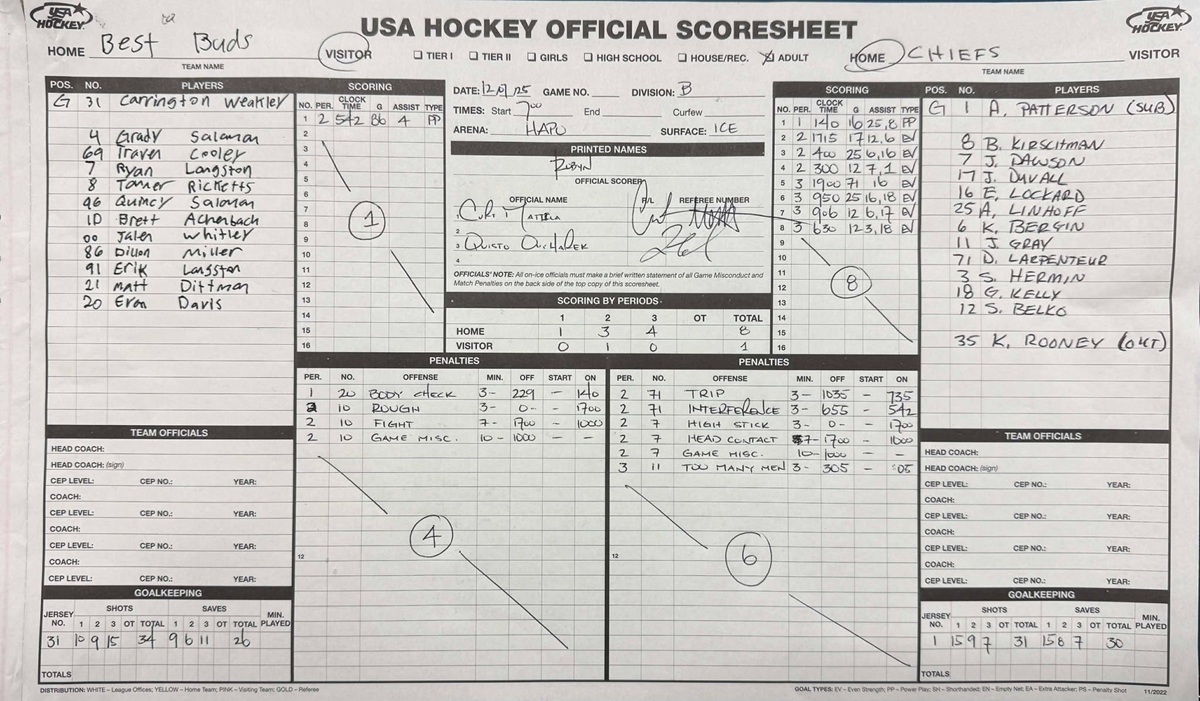 USA HOCKEY
USA HOCKEY OFFICIAL SCORESHEET
USA HOCKEY
HOME Best Buds VISITOR
TEAM NAME
☐ TIER I ☐ TIER II ☐ GIRLS ☐ HIGH SCHOOL ☐ HOUSE/REC. ☒ ADULT
HOME CHIEFS VISITOR
TEAM NAME
POS. NO. PLAYERS
G 31 Carrington Weakley
4 Grady Salaman
69 Traven Cooley
7 Ryan Langston
8 Tanner Ricketts
96 Quincy Salaman
10 Brett Achenbach
00 Jalen Whitley
86 Dillon Miller
91 Erik Langston
21 Matt Dittman
20 Evan Davis
SCORING
NO. PER. CLOCK TIME G ASSIST TYPE
1 2 542 86 4 PP
2
3
4
5
6
7
8
9
10
11
12
13
14
15
16
1
DATE: 12/9/25 GAME NO. DIVISION: B
TIMES: Start 7:00 End Curfew
ARENA: HAPO SURFACE: ICE
PRINTED NAMES
ROBYN
OFFICIAL SCORER
OFFICIAL NAME R/L REFEREE NUMBER
2
3
4
OFFICIALS' NOTE: All on-ice officials must make a brief written statement of all Game Misconduct and
Match Penalties on the back side of the top copy of this scoresheet.
SCORING BY PERIODS
1 2 3 OT TOTAL
HOME 1 3 4 8
VISITOR 0 1 0 1
SCORING
NO. PER. CLOCK TIME G ASSIST TYPE
1 1 140 16 25,8 PP
2 2 1715 17 12,6 EV
3 2 400 25 6,16 EV
4 2 300 12 7,1 EV
5 3 1900 71 16 EV
6 3 950 25 16,18 EV
7 3 906 12 6,17 EV
8 3 630 12 3,18 EV
9
10
11
12
13
14
15
16
8
POS. NO. PLAYERS
G 1 A. PATTERSON (SUB)
8 B. KIRSCHMAN
7 J. DAWSON
17 J. DUVALL
16 E. LOCKARD
25 A. LINHOFF
6 K. BERGIN
11 J. GRAY
71 D. LARPENTEUR
3 S. HERMIN
18 G. KELLY
12 S. BELKO
35 K. ROONEY (OUT)
PENALTIES
PER. NO. OFFENSE MIN. OFF START ON
1 20 BODY CHECK 3- 229 - 140
2 10 ROUGH 3- 0- - 1700
2 10 FIGHT 7- 1700 - 1000
2 10 GAME MISC. 10- 1000 - -
12
4
PENALTIES
PER. NO. OFFENSE MIN. OFF START ON
2 71 TRIP 3- 1035 - 735
2 71 INTERFERENCE 3- 655 - 542
2 7 HIGH STICK 3- 0- - 1700
2 7 HEAD CONTACT 7- 1700 - 1000
2 7 GAME MISC. 10- 1000 - -
3 11 TOO MANY MEN 3- 305 - 05
12
6
TEAM OFFICIALS
HEAD COACH:
HEAD COACH: (sign)
CEP LEVEL: CEP NO.: YEAR:
COACH:
CEP LEVEL: CEP NO.: YEAR:
COACH:
CEP LEVEL: CEP NO.: YEAR:
COACH:
CEP LEVEL: CEP NO.: YEAR:
GOALKEEPING
JERSEY NO. SHOTS 1 2 3 OT TOTAL SAVES 1 2 3 OT TOTAL MIN. PLAYED
31 10 9 15 34 9 6 11 26
TOTALS
TEAM OFFICIALS
HEAD COACH:
HEAD COACH: (sign)
CEP LEVEL: CEP NO.: YEAR:
COACH:
CEP LEVEL: CEP NO.: YEAR:
COACH:
CEP LEVEL: CEP NO.: YEAR:
COACH:
CEP LEVEL: CEP NO.: YEAR:
GOALKEEPING
JERSEY NO. SHOTS 1 2 3 OT TOTAL SAVES 1 2 3 OT TOTAL MIN. PLAYED
1 15 9 7 31 15 8 7 30
TOTALS
DISTRIBUTION: WHITE – League Offices; YELLOW – Home Team; PINK – Visiting Team; GOLD – Referee
GOAL TYPES: EV – Even Strength; PP – Power Play; SH – Shorthanded; EN – Empty Net; EA – Extra Attacker; PS – Penalty Shot
11/2022